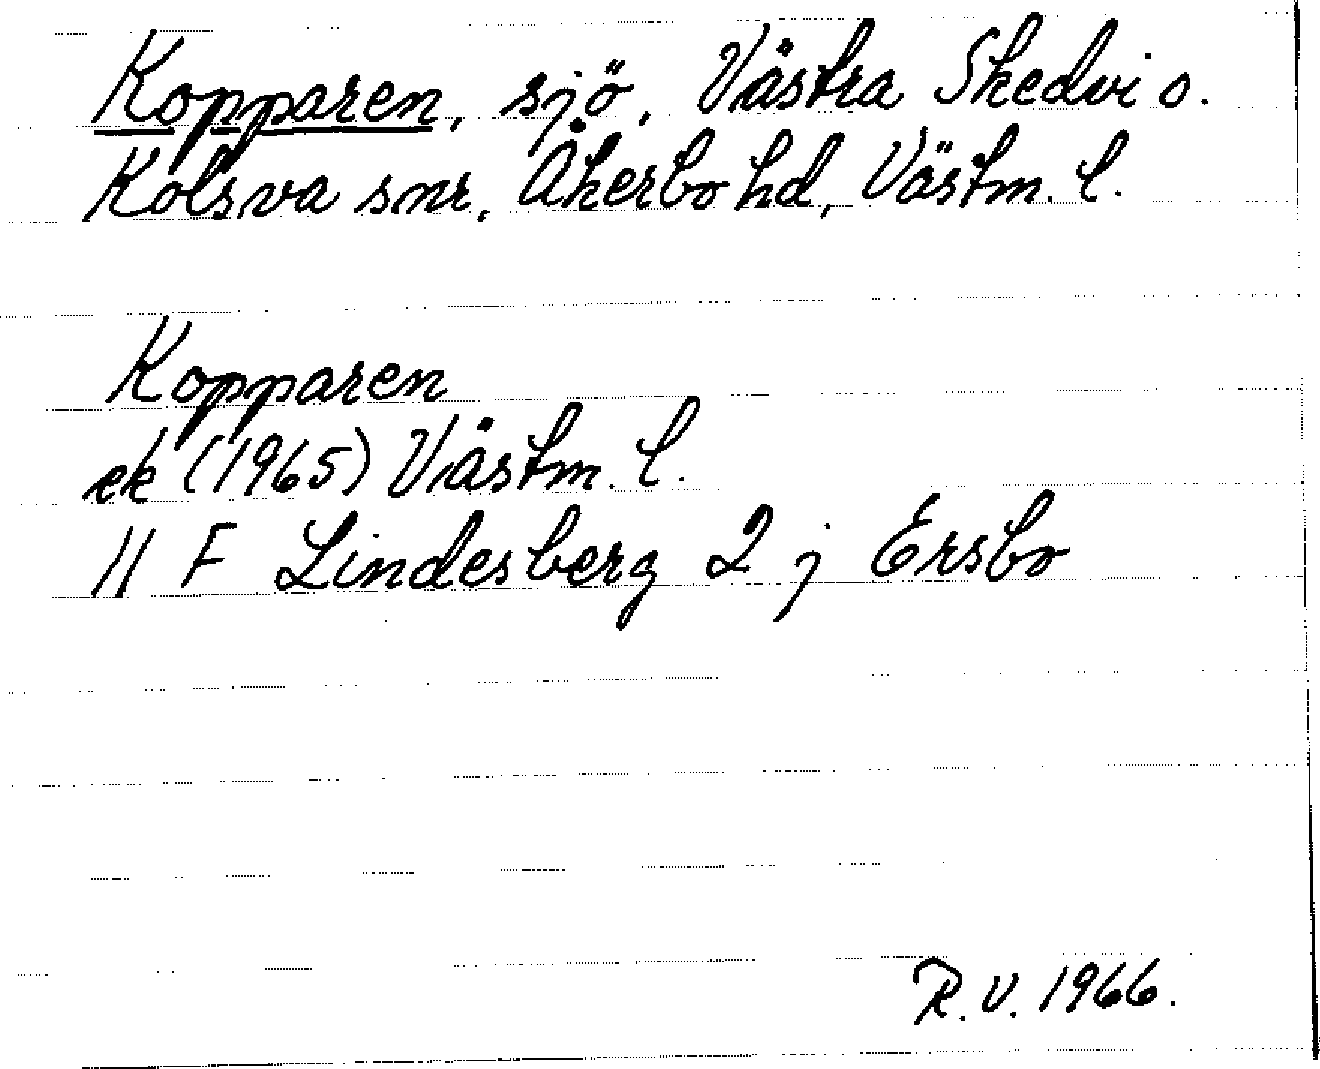 Kopparen, sjö, Västra Skedvi o.
Kolsva snr, Åkerbo hd, Västm. l.
Kopparen
ek (1965) Västm. l.
11 F Lindesberg 2 j Ersbo
R.V. 1966.